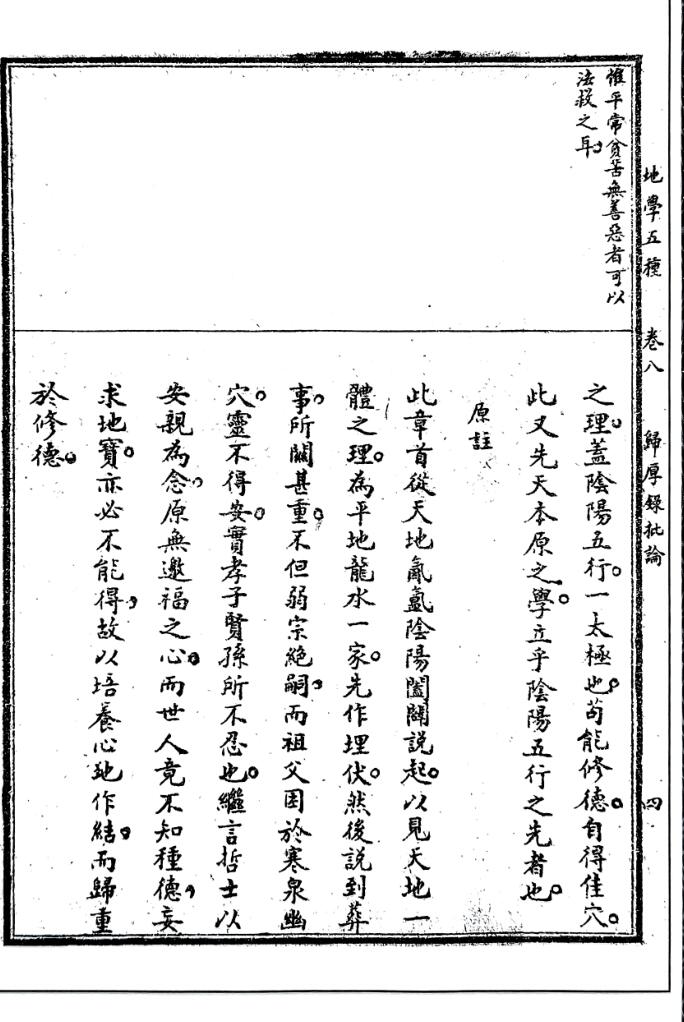 地學五種　卷八　歸厚錄批論　四
惟平常貧苦無善惡者可以
法救之耳
之理蓋陰陽五行一太極也苟能修德自得佳穴
此又先天本原之學立乎陰陽五行之先者也
原註
此章首從天地氤氳陰陽闔闢說起以見天地一
體之理為平地龍水一家先作埋伏然後說到葬
事所關甚重不但弱宗絶嗣而祖父困於寒泉幽
穴靈不得安實孝子賢孫所不忍也繼言哲士以
安親為念原無邀福之心而世人竟不知種德妄
求地寶亦必不能得故以培養心地作結而歸重
於修德